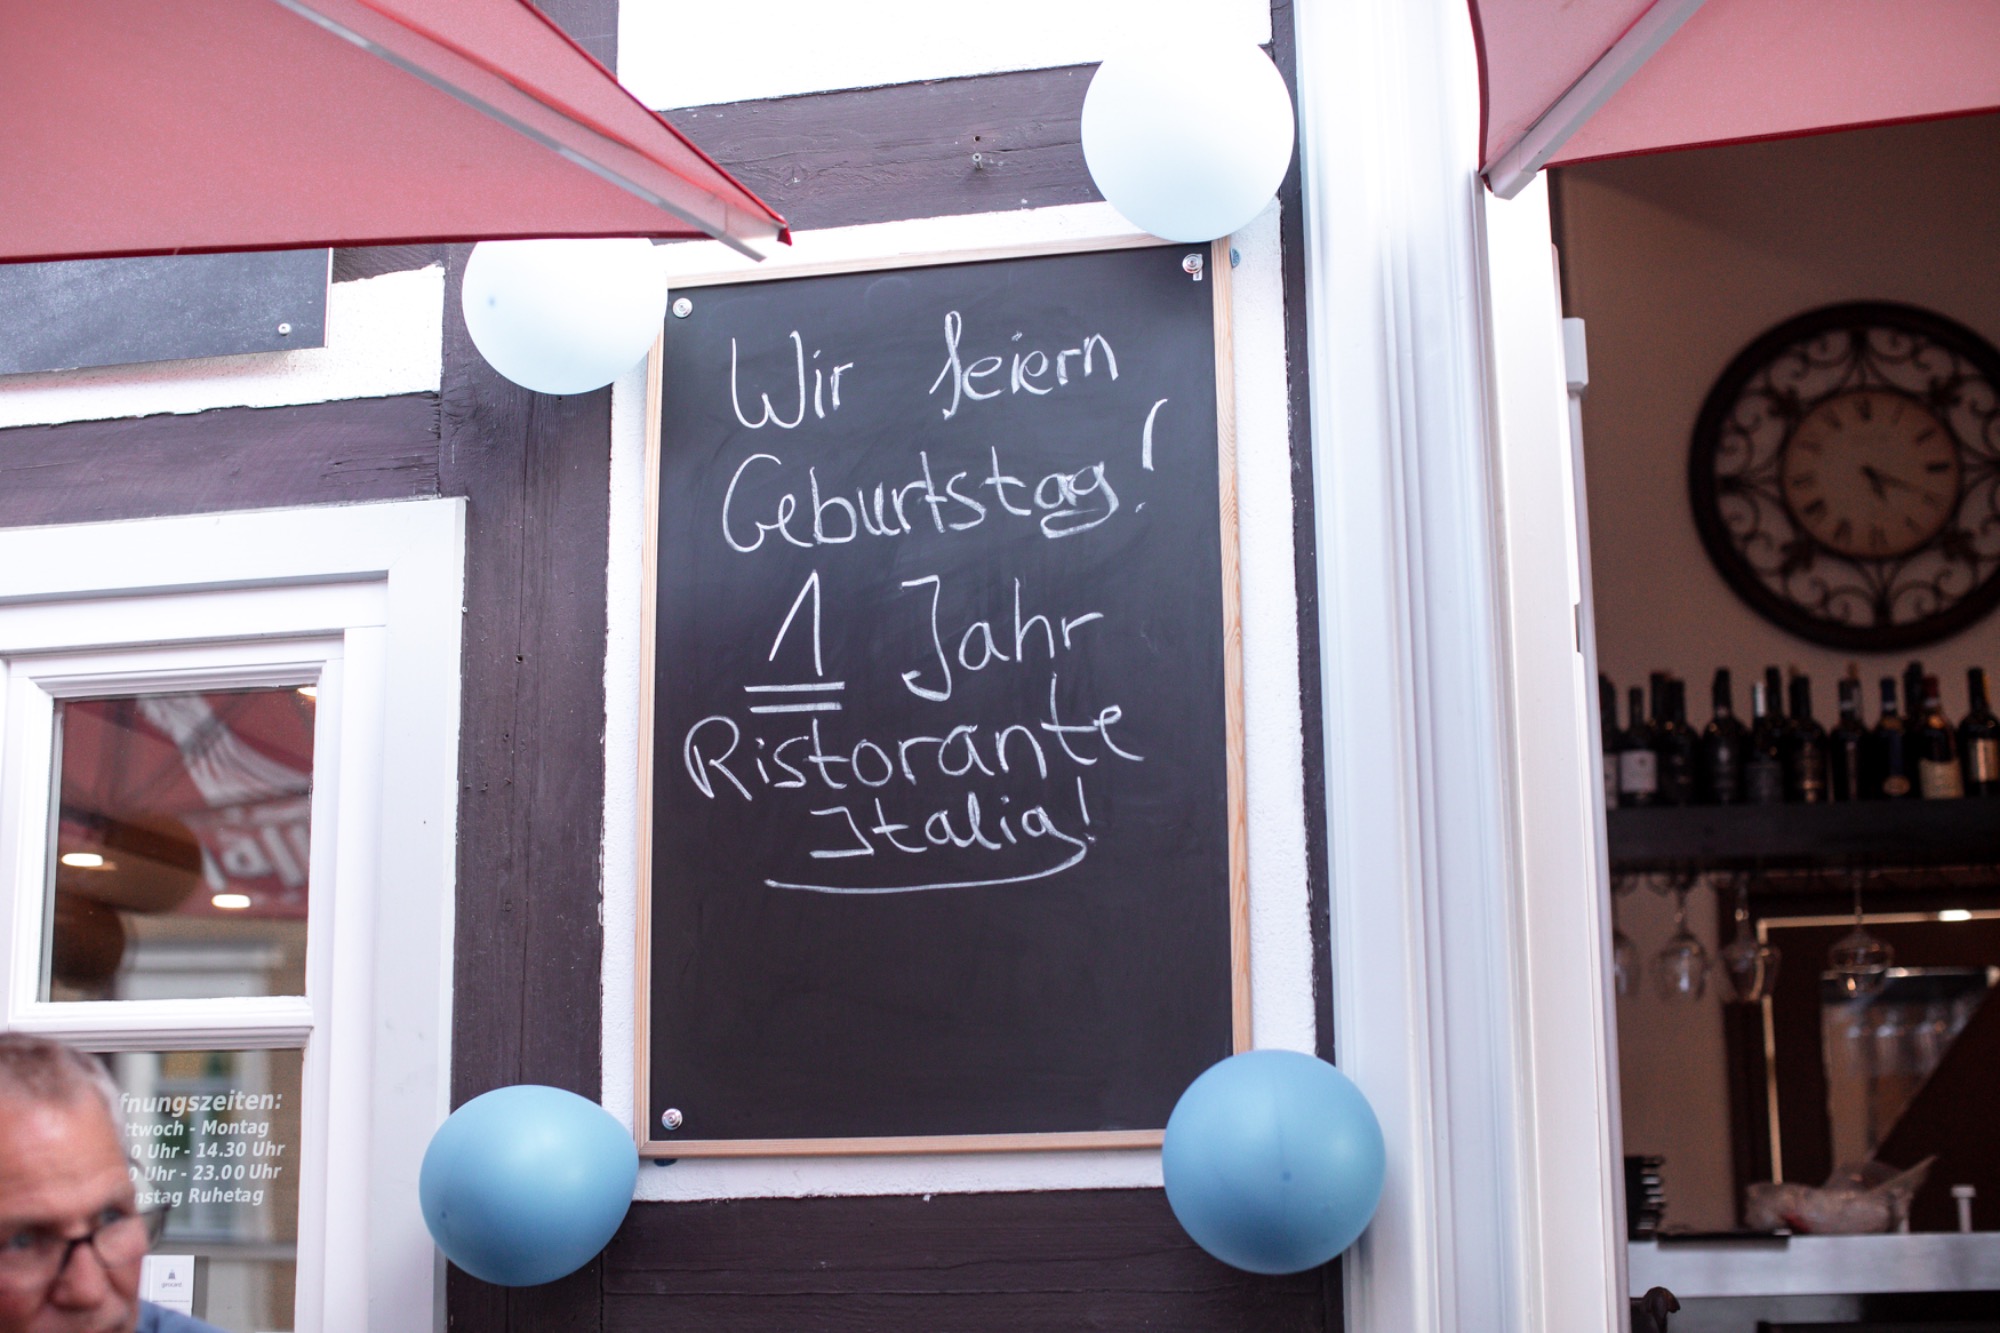 Wir feiern
Geburtstag!
1 Jahr
Ristorante
Italia!
fnungszeiten:
ttwoch - Montag
0 Uhr - 14.30 Uhr
0 Uhr - 23.00 Uhr
nstag Ruhetag
girocard